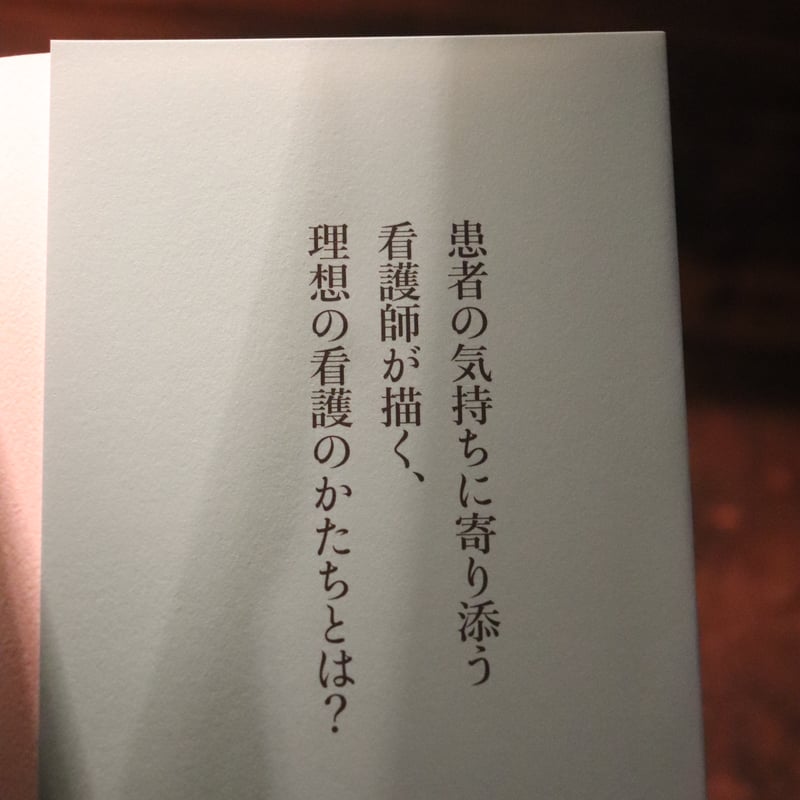 患者の気持ちに寄り添う
看護師が描く、
理想の看護のかたちとは？